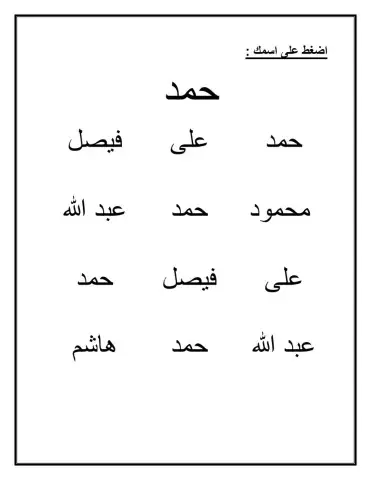 اضغط على اسمك :
حمد
حمد على فيصل
محمود حمد عبد الله
على فيصل حمد
عبد الله حمد هاشم